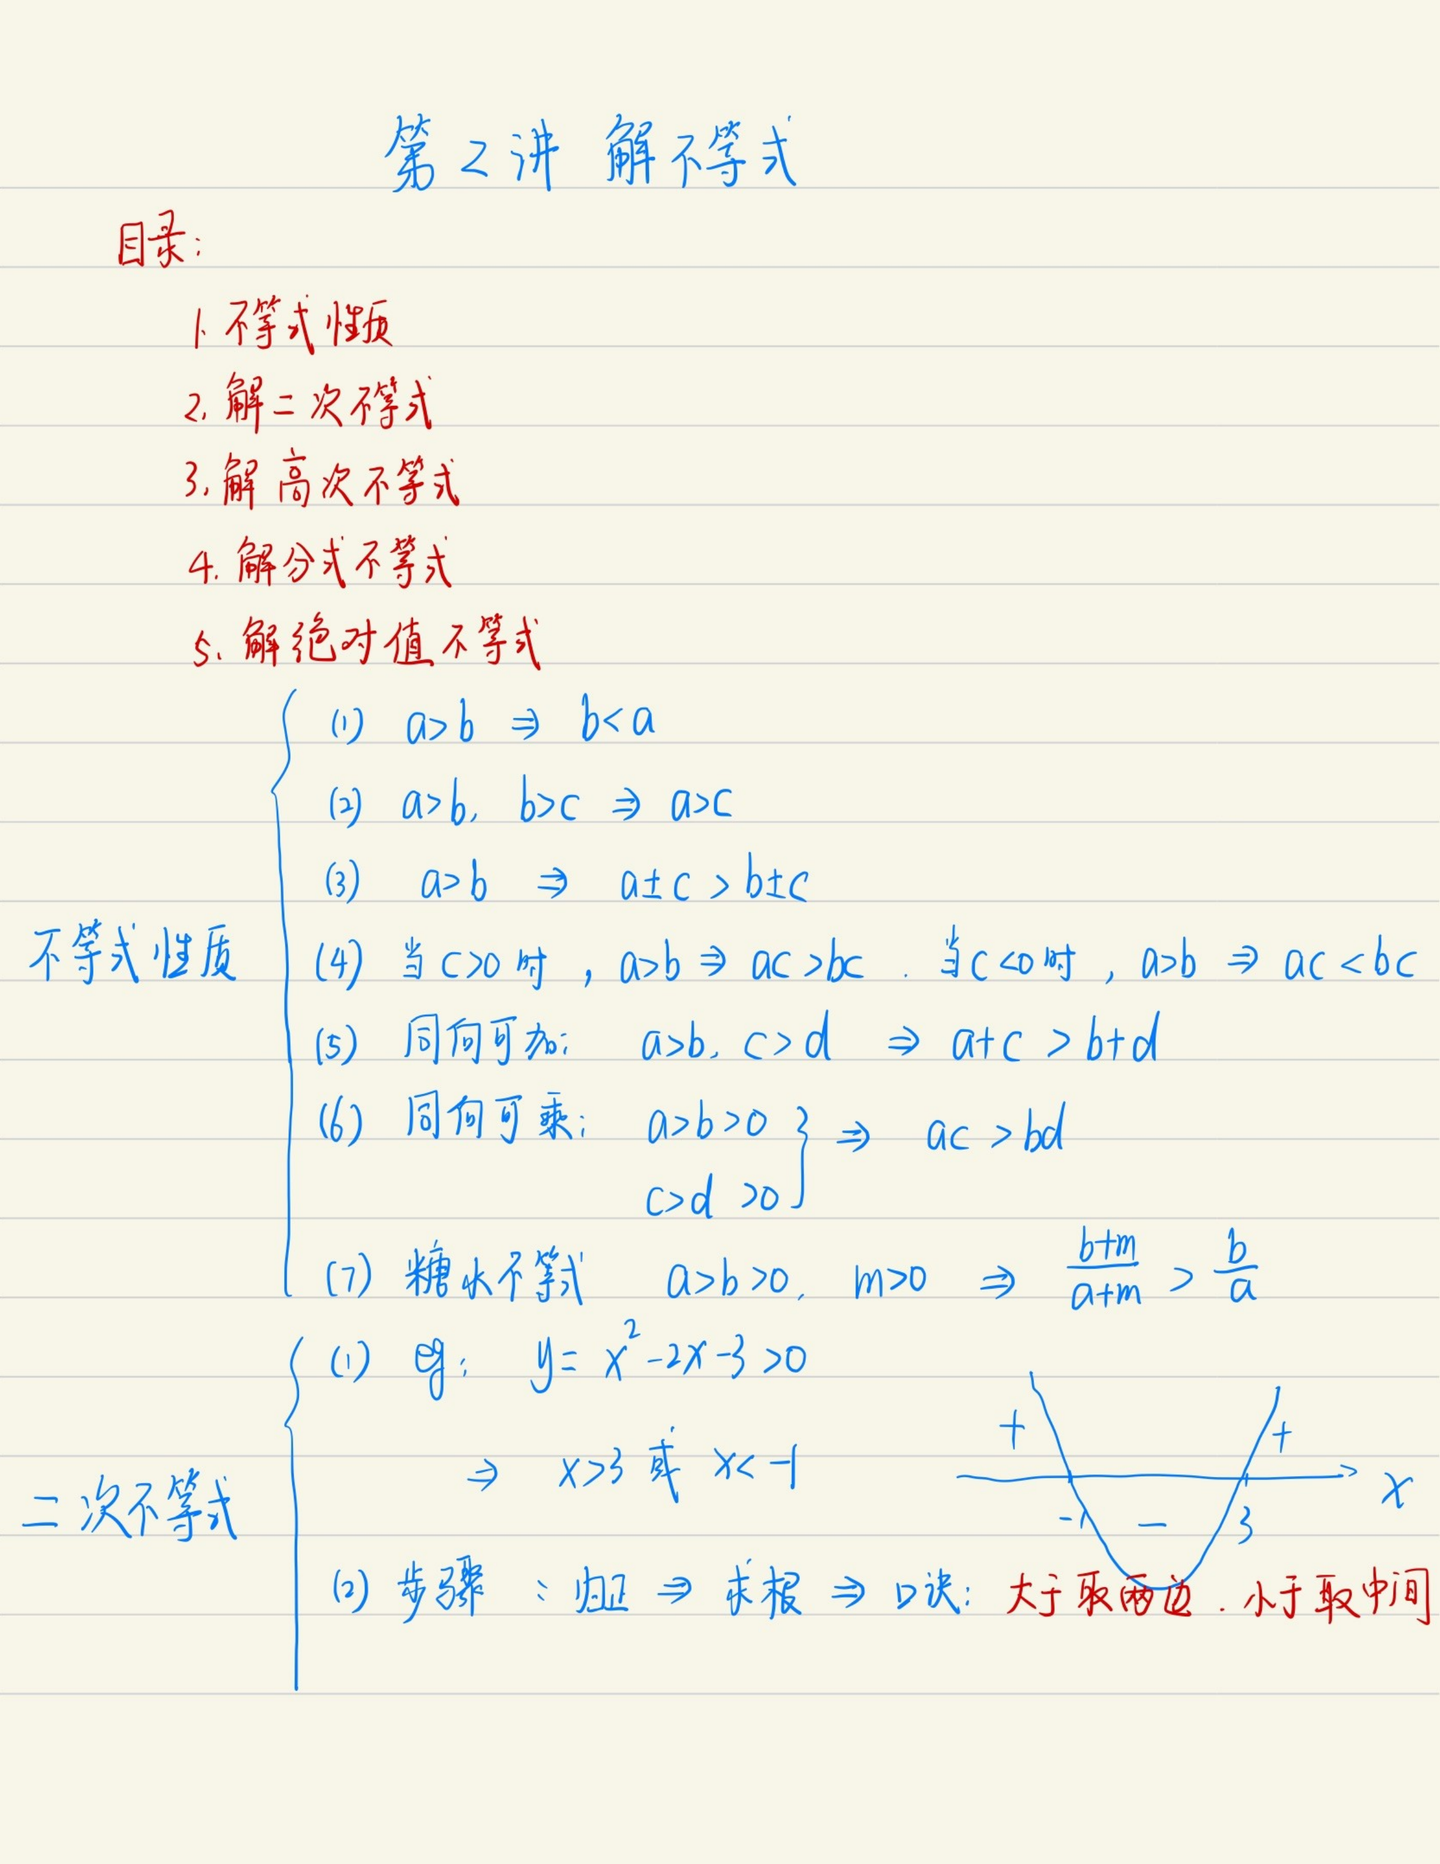 第2讲 解不等式
目录:
1. 不等式性质
2. 解二次不等式
3. 解高次不等式
4. 解分式不等式
5. 解绝对值不等式
(1) a>b ⇒ b<a
(2) a>b, b>c ⇒ a>c
(3) a>b ⇒ a±c > b±c
不等式性质
(4) 当c>0时, a>b ⇒ ac>bc. 当c<0时, a>b ⇒ ac<bc
(5) 同向可加: a>b, c>d ⇒ a+c > b+d
(6) 同向可乘: a>b>0 } ⇒ ac>bd
c>d>0
(7) 糖水不等式 a>b>0, m>0 ⇒ (b+m)/(a+m) > b/a
(1) eg: y= x²-2x-3>0
+ +
⇒ x>3 或 x<-1
x
二次不等式
-1 - 3
(2) 步骤: 归正 ⇒ 求根 ⇒ 口诀: 大于取两边. 小于取中间